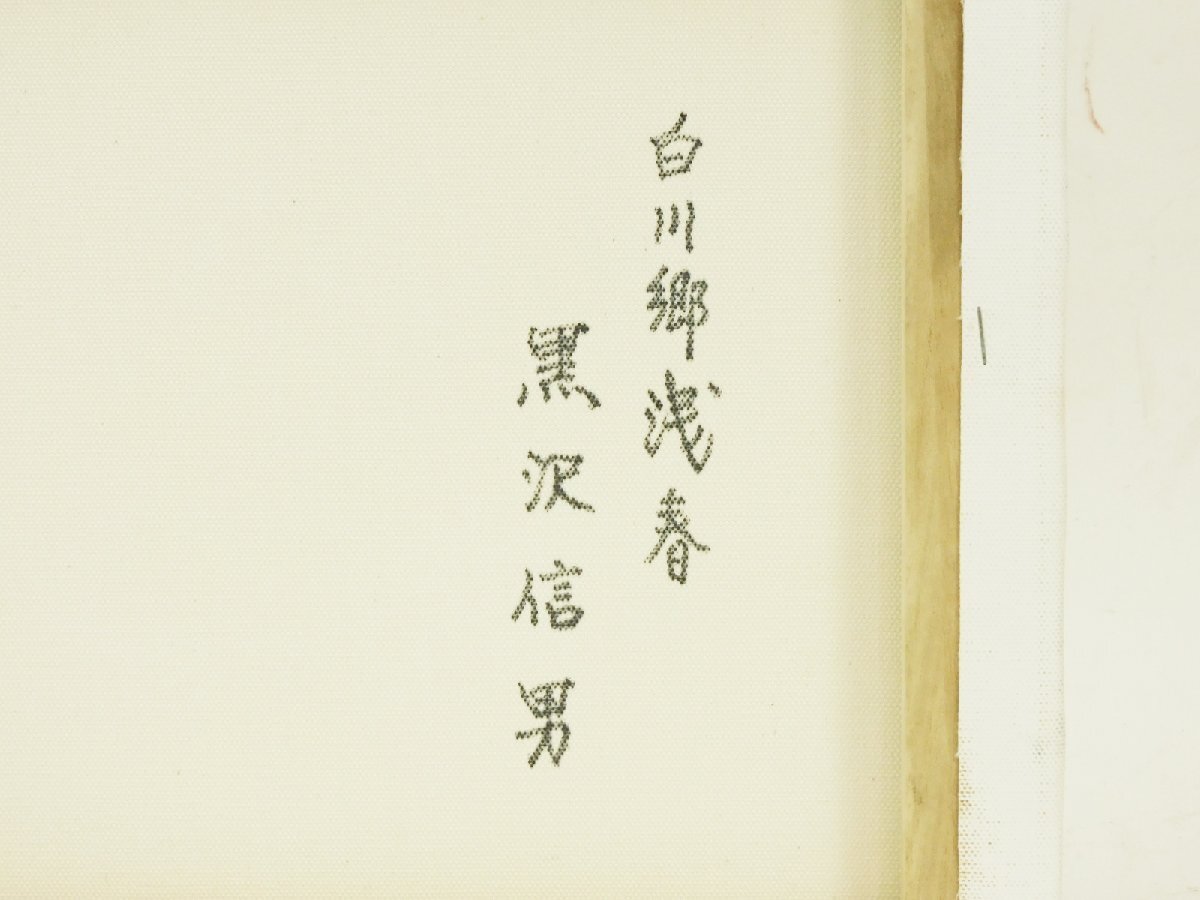 白川郷浅春
黒沢信男